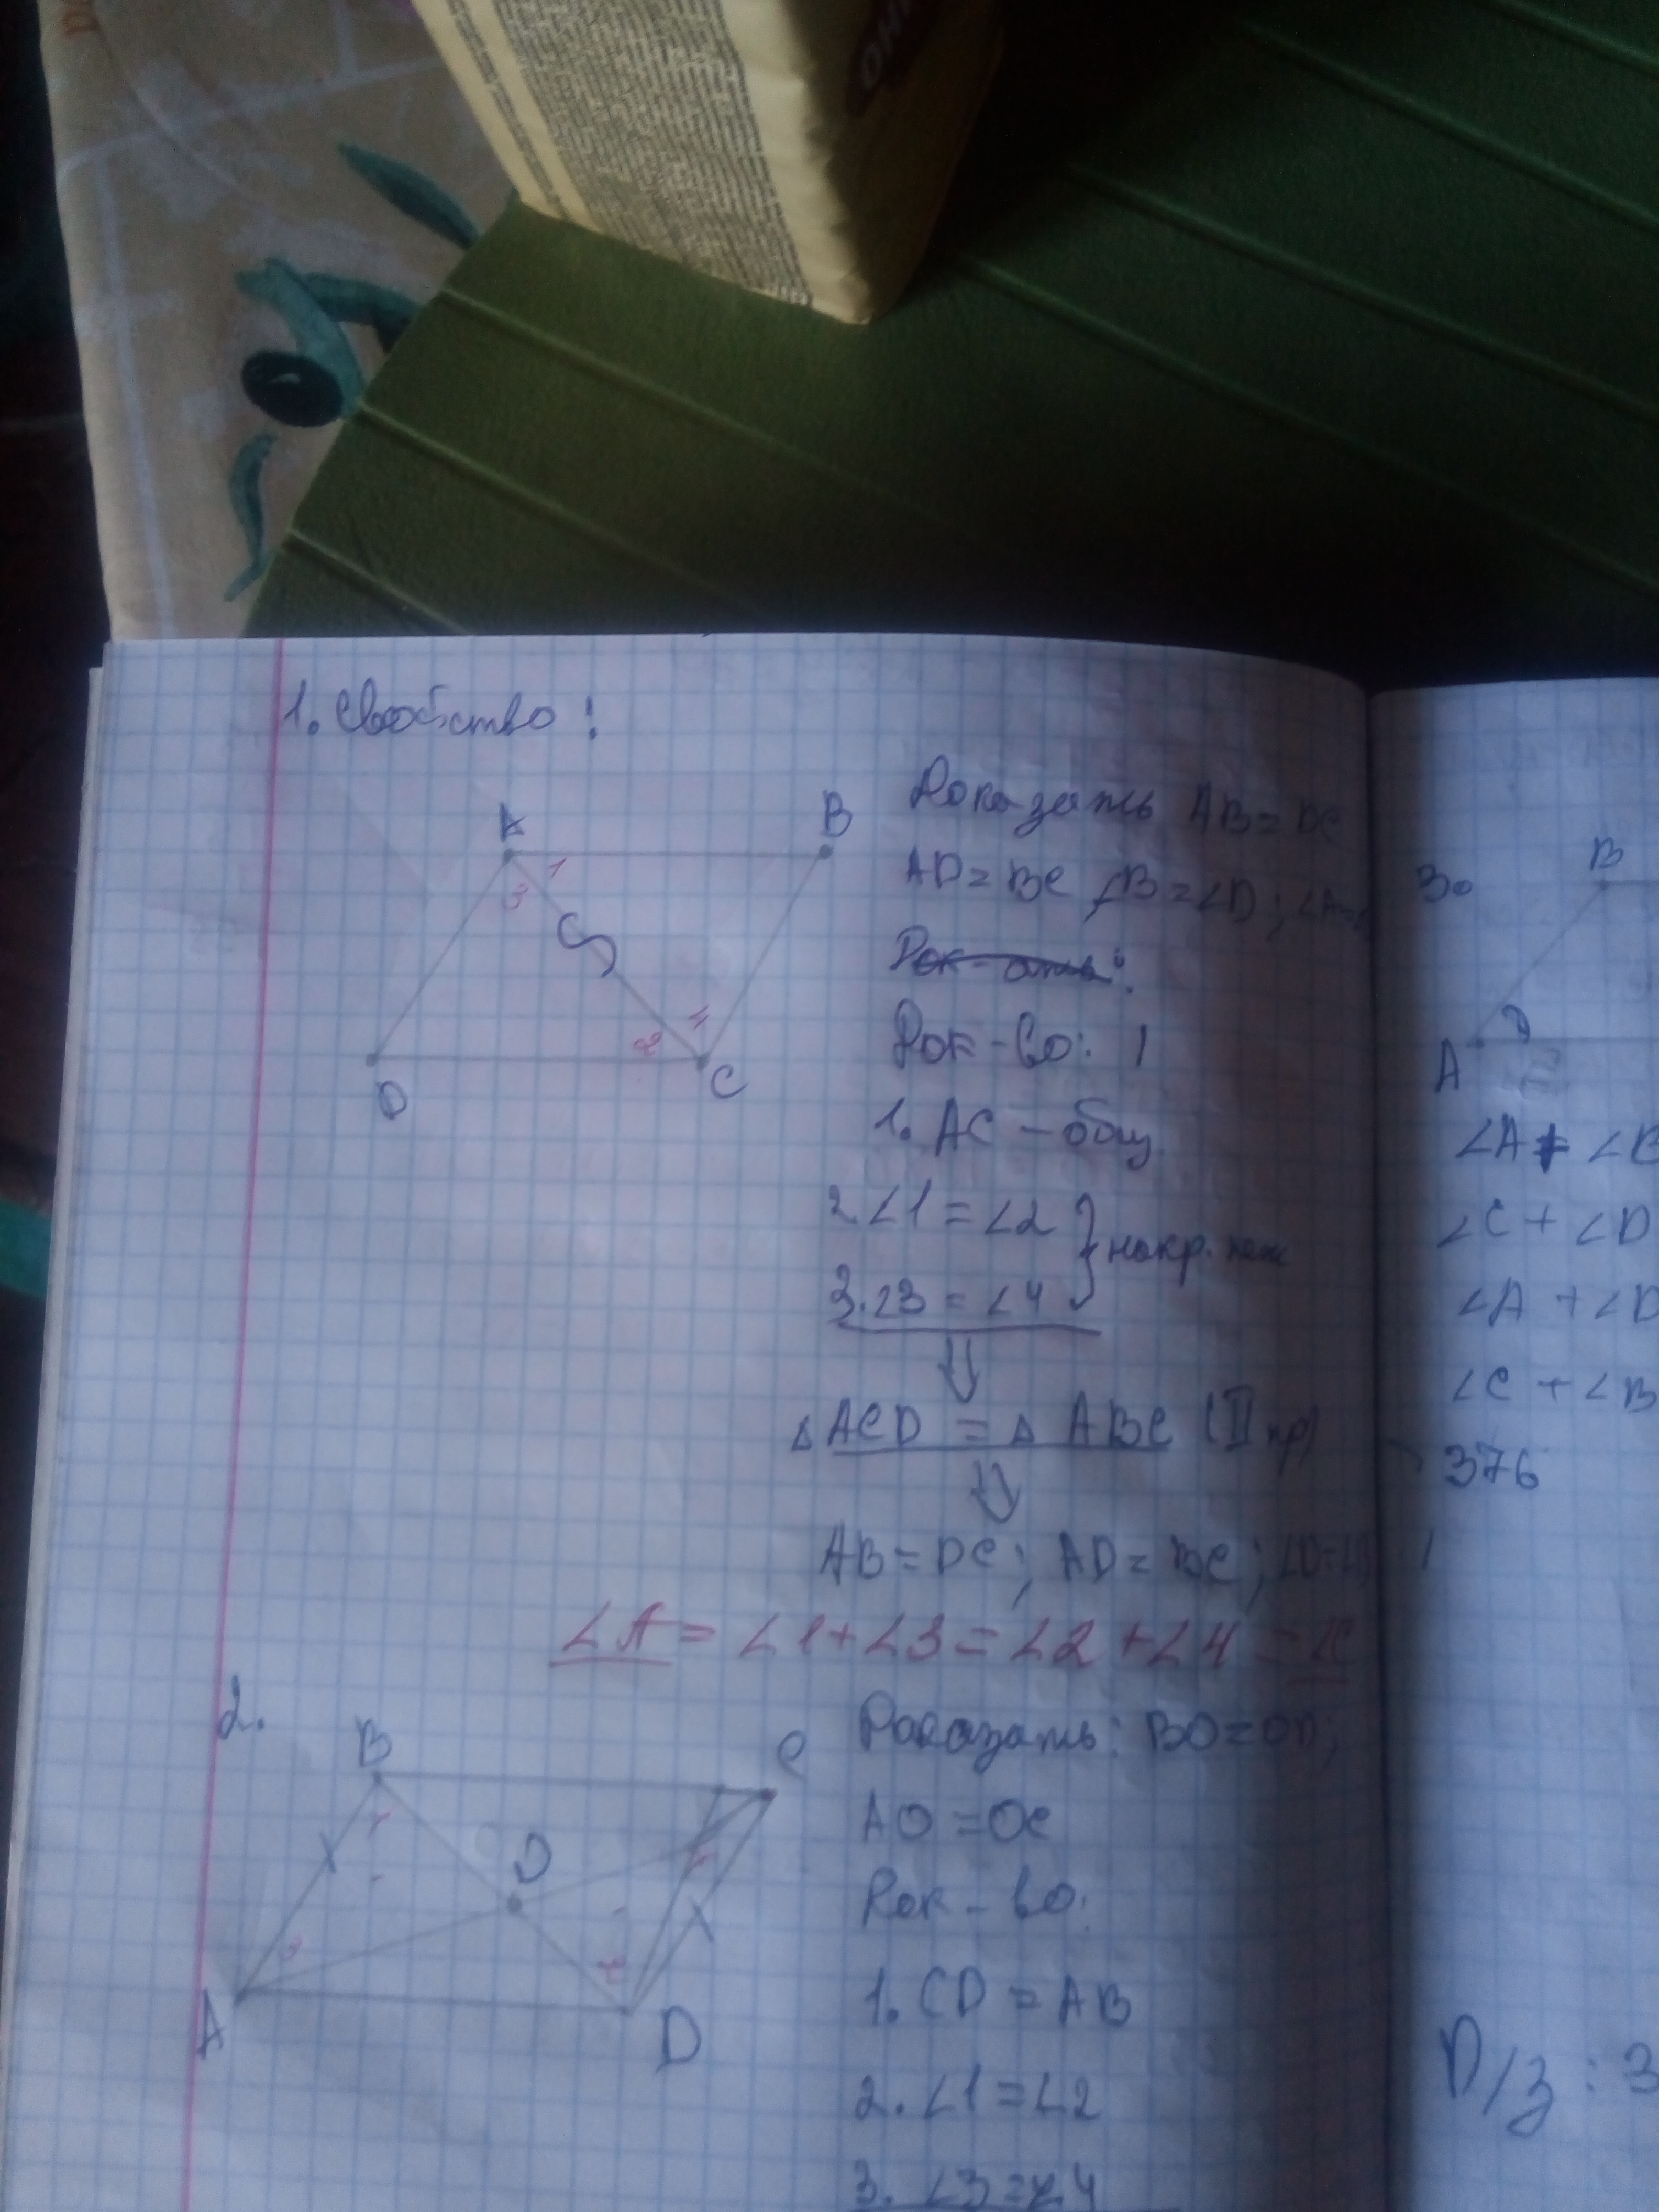 1. Свойство:
A
B
1
3
4
2
D
C
Доказать AB = DC
AD = BC ∠B = ∠D; ∠A=
Док-во:
1. AC – общ.
2. ∠1 = ∠2
3. ∠3 = ∠4
накр. леж
⇓
△ ACD = △ ABC (II пр)
⇓
AB = DC; AD = BC; ∠D=∠B
∠A = ∠1 + ∠3 = ∠2 + ∠4 = ∠C
2.
B
C
O
A
D
Доказать: BO = OD;
AO = OC
Док-во:
1. CD = AB
2. ∠1 = ∠2
3. ∠3 = ∠4
3.
B
A
∠A + ∠B
∠C + ∠D
∠A + ∠D
∠C + ∠B
376
D/з: 3